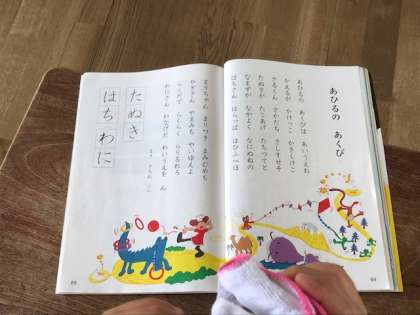 あひるの あくび
あひるの あくびは あいうえお
かえるが かけっこ かきくけこ
さるくん さかだち さしすせそ
たぬきが たこあげ たちつてと
なまずが なかよく なにぬねの
はちさん はらっぱ はひふへほ
64
まりちゃん まりつき まみむめも
やぎさん やまみち やいゆえよ
らくだで らくらく らりるれろ
わにさん わなげだ わいうえを ん
まき さちお
たぬき
はち わに
65